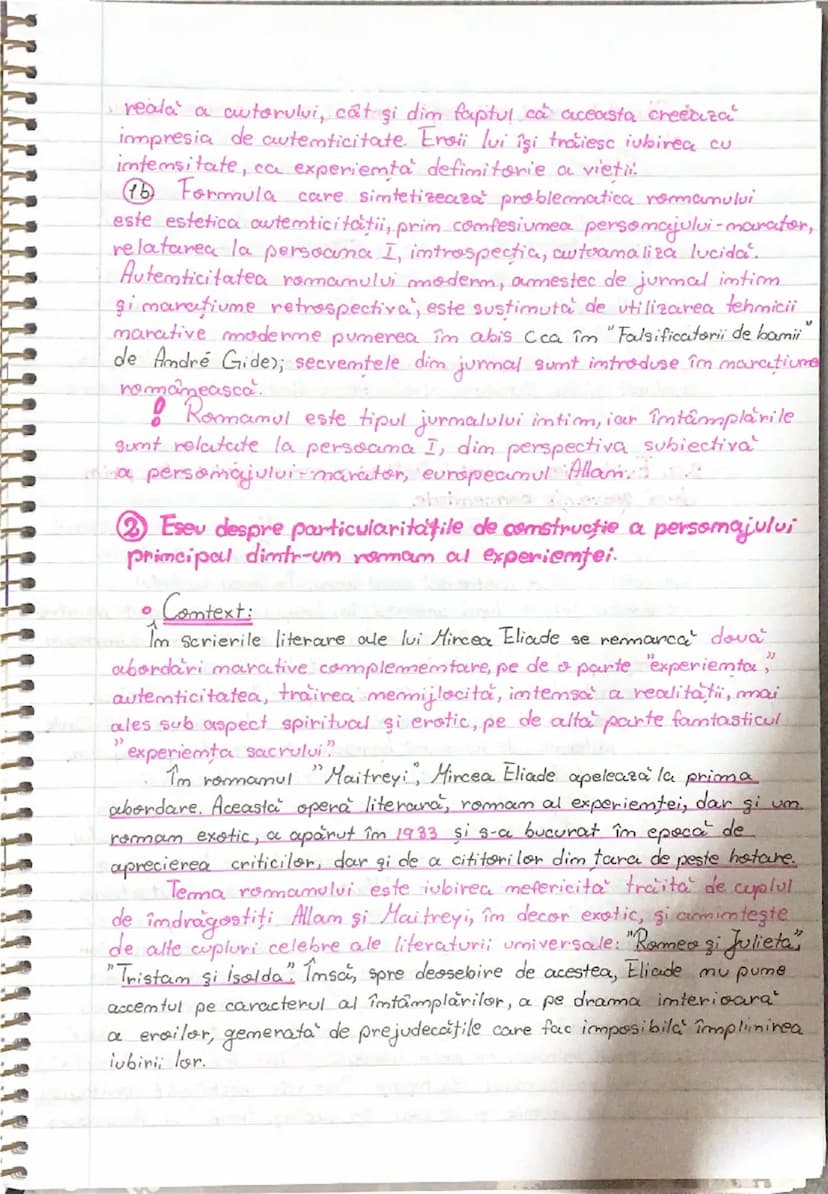 reală a autorului, cât și din faptul că aceasta creează
impresia de autenticitate. Eroii lui își trăiesc iubirea cu
intensitate, ca experiență definitorie a vieții.
(1b) Formula care sintetizează problematica romanului
este estetica autenticității, prin confesiunea personajului-narator,
relatarea la persoana I, introspecția, autoanaliza lucidă.
Autenticitatea romanului modern, amestec de jurnal intim
și narațiune retrospectivă, este susținută de utilizarea tehnicii
narative moderne punerea în abis (ca în "Falsificatorii de bani"
de André Gide); secvențele din jurnal sunt introduse în narațiunea
românească.
! Romanul este tipul jurnalului intim, iar întâmplările
sunt relatate la persoana I, din perspectiva subiectivă
a personajului-narator, europeanul Allan.
(2) Eseu despre particularitățile de construcție a personajului
principal dintr-un roman al experienței.
• Context:
În scrierile literare ale lui Mircea Eliade se remarcă două
abordări narative complementare, pe de o parte "experiența",
autenticitatea, trăirea nemijlocită, intensă a realității, mai
ales sub aspect spiritual și erotic, pe de altă parte fantasticul
"experiența sacrului".
În romanul "Maitreyi", Mircea Eliade apelează la prima
abordare. Această operă literară, roman al experienței, dar și un
roman exotic, a apărut în 1933 și s-a bucurat în epocă de
aprecierea criticilor, dar și de a cititorilor din țara de peste hotare.
Tema romanului este iubirea nefericită trăită de cuplul
de îndrăgostiți Allan și Maitreyi, în decor exotic, și amintește
de alte cupluri celebre ale literaturii universale: "Romeo și Julieta",
"Tristan și Isolda". Însă, spre deosebire de acestea, Eliade nu pune
accentul pe caracterul al întâmplărilor, a pe drama interioară
a eroilor, generată de prejudecățile care fac imposibilă împlinirea
iubirii lor.